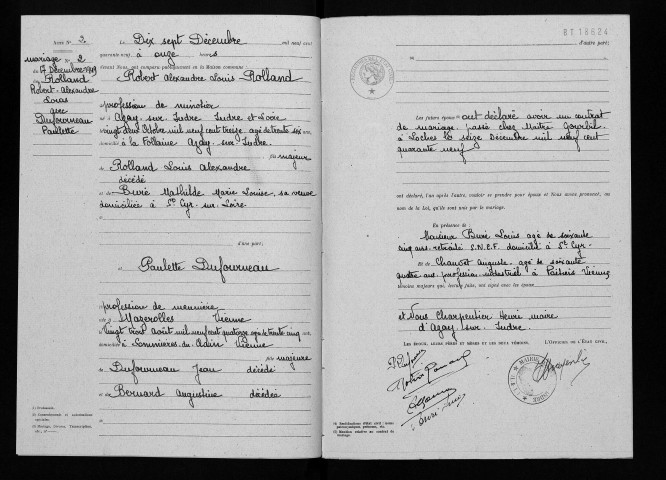 Acte N° 2.
mariage N° 2
du 17 Décembre 1949
Rolland
Robert Alexandre
Louis
avec
Dufourneau
Paulette
Le Dix sept Décembre mil neuf cent
quarante-neuf à onze heures
devant Nous, ont comparu publiquement en la Maison commune
Robert Alexandre Louis Rolland
profession de minotier
né à Azay-sur-Indre Indre et Loire
vingt deux Octobre mil neuf cent treize agé de trente six ans,
domicilié à la Fontaine Azay-sur-Indre.
fils majeur
de Rolland Louis Alexandre
décédé
et de Buré Mathilde Marie Louise, sa veuve
domiciliée à St Cyr-sur-Loire.
d'une part;
et Paulette Dufourneau
profession de meunière
née à Mazerolles Vienne
Vingt trois Août mil neuf cent quatorze agée de trente cinq ans,
domiciliée à Sommières-du-Clain Vienne
fille majeure
de Dufourneau Jean décédé
et de Bernard Augustine décédée
(1) Prénoms.
d'autre part;
Les futurs époux ont déclaré avoir un contrat
de mariage passé chez Maître
à Loches le seize Décembre mil neuf cent
quarante neuf
ont déclaré, l'un après l'autre, vouloir se prendre pour époux et Nous avons prononcé, au
nom de la Loi, qu'ils sont unis par le mariage.
En présence de :
Monsieur Buré Louis agé de soixante
cinq ans retraité S.N.C.F. domicilié à St Cyr-
Et de Chauvet Auguste agé de soixante
quatre ans profession industriel à Poitiers Vienne
témoins majeurs qui, lecture faite, ont signé avec les époux
et Nous Charpentier Henri maire
d'Azay-sur-Indre.
LES ÉPOUX, LEURS PÈRES ET MÈRES ET LES DEUX TÉMOINS,
L'OFFICIER DE L'ÉTAT CIVIL,